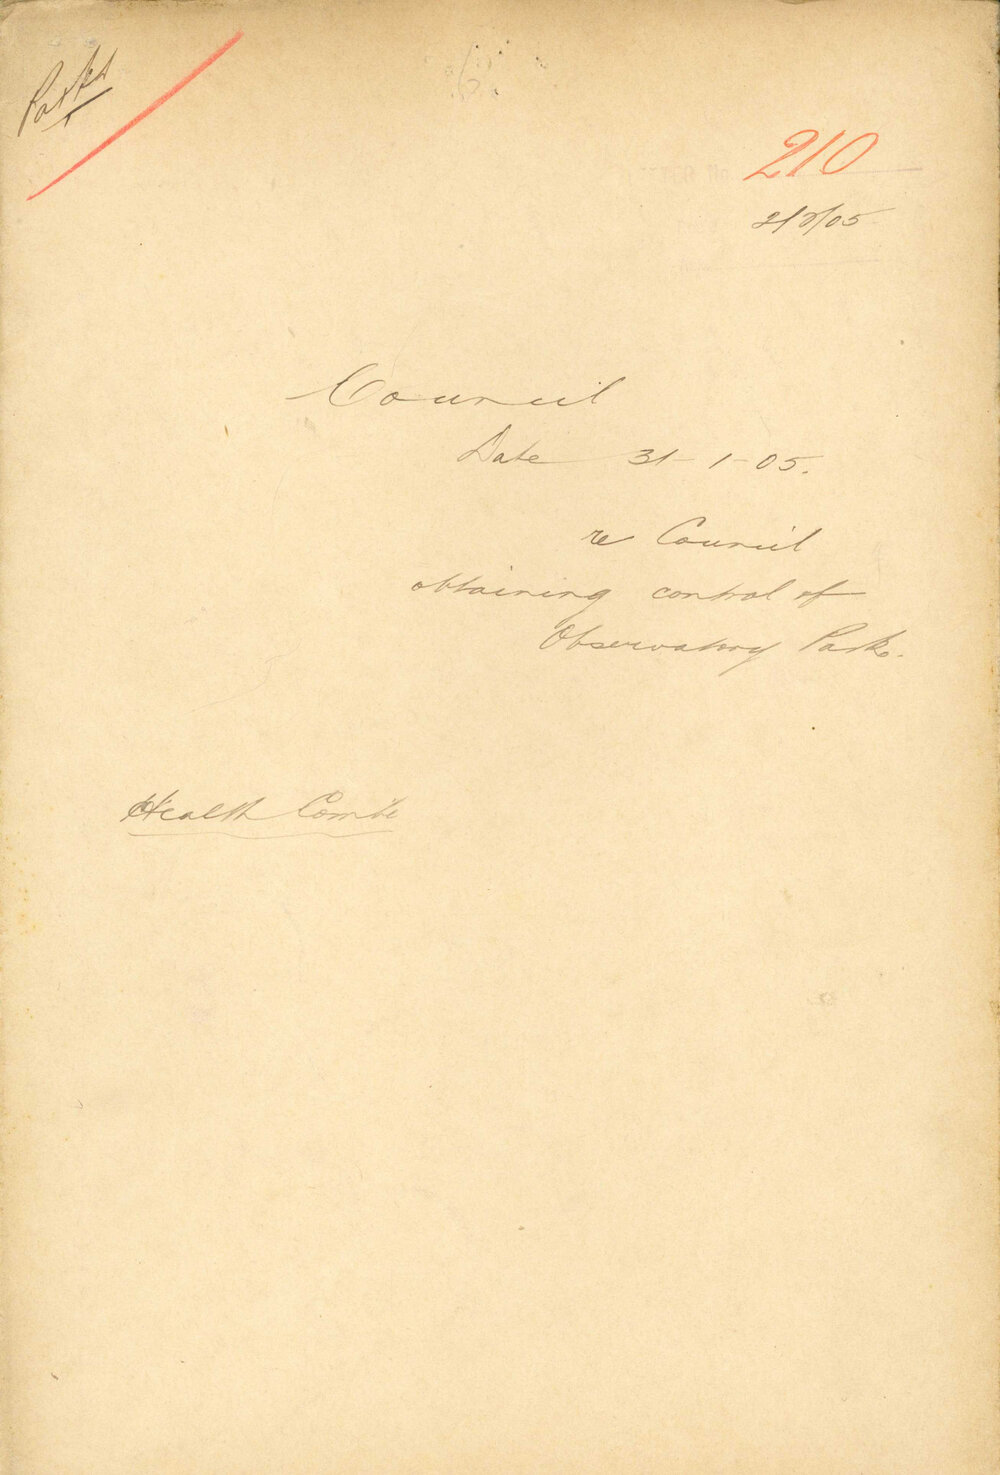 Parks
210
2/2/05
Council
Date 31-1-05.
re Council
obtaining control of
Observatory Park.
Health Comte